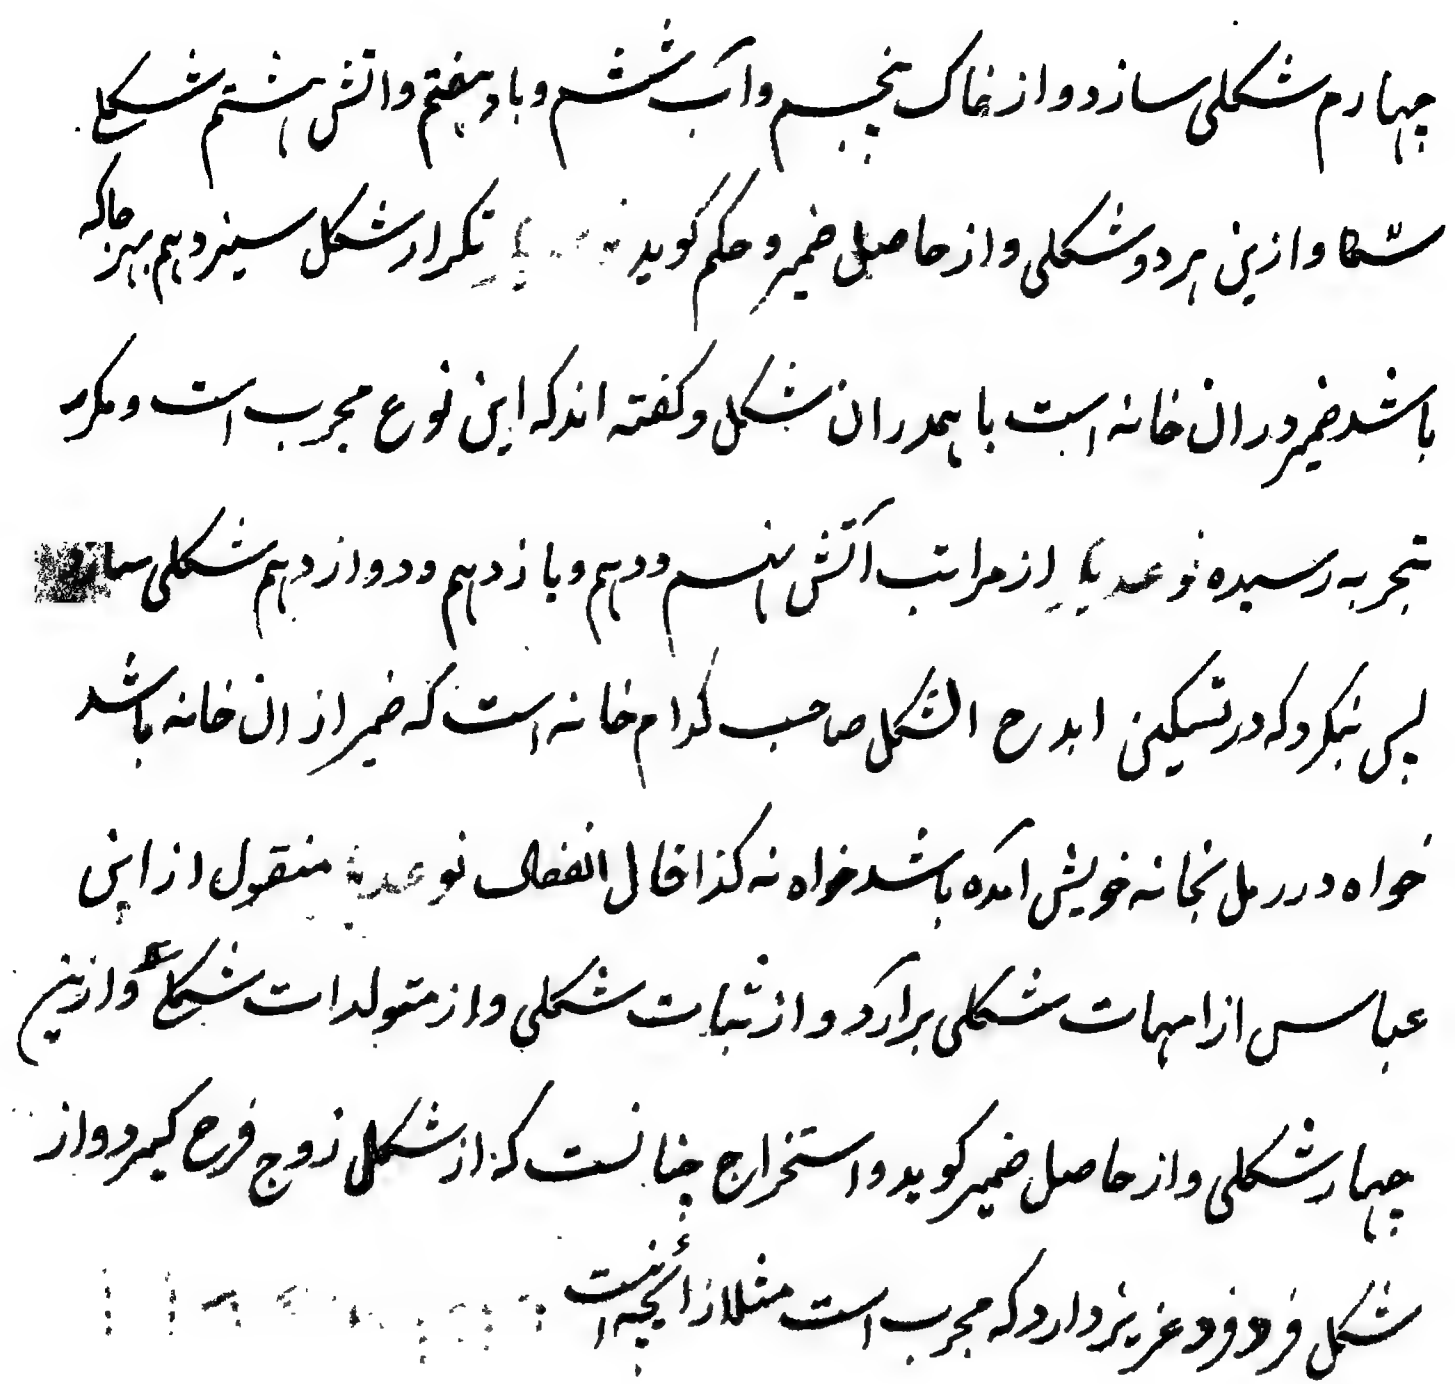 چهارم شکلی سازد و از خاک پنجم و آب ششم و باد هفتم و اتش هشتم شکلی
و ازین هر دو شکلی و از حاصل ضمیر و حکم کوید نوعدیکر تکرار شکل سیزدهم بهر جا که
باشد ضمیر در ان خانه است با همدران شکل و کفته اند که این نوع مجرب است و مکرر
تجربه رسیده نوعدیکر از مراتب آتش نهم و دهم و یازدهم و دوازدهم شکلی سازد
پس بنکرد که در تسکین ابدح الشکل صاحب کدام خانه است که ضمیر از ان خانه باشد
خواه در رمل بخانه خویش آمده باشد خواه نه کذا قال انفضال نوعدیکر منقول از ابن
عباس از امهات شکلی برآرد و از نبات شکلی و از متولدات شکلی و ازین
چهار شکلی و از حاصل ضمیر کوید و استخراج چنانست که از شکل زوج فرح کیرد و از
شکل فرد فرد عزیز دارد که مجرب است مثلا زائچه اینست